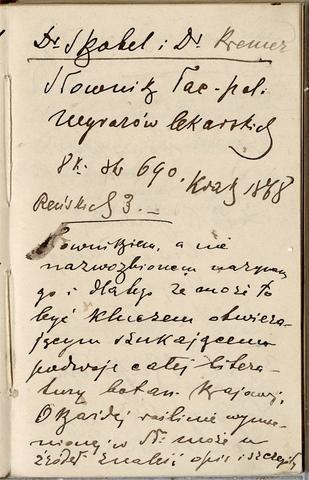 Dr Skobel i Dr Kremer
Słownik łac-pol.
wyrazów lekarskich
8k. str 690. Krak 1868
Reńskich 3. —
Słownikiem, a nie
nazwozbiorem nazywam
go i dlatego że może to
być kluczem otwiera-
jącym szukającemu
podwoje całej litera-
tury botan. krajowej,
O każdej roślinie wymie-
nionej w Nr może w
źródeł znaleść opis i szczegóły